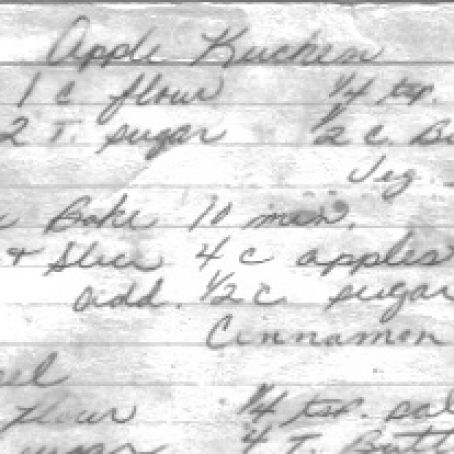 Apple Kuchen
1 c flour 1/4 tsp.
2 T. sugar 1/2 c. Bu
Veg
Bake 10 min.
+ Slice 4 c apples
add. 1/2 c. sugar
Cinnamon
flour 1/4 tsp. sal
sugar 4 T. Butt